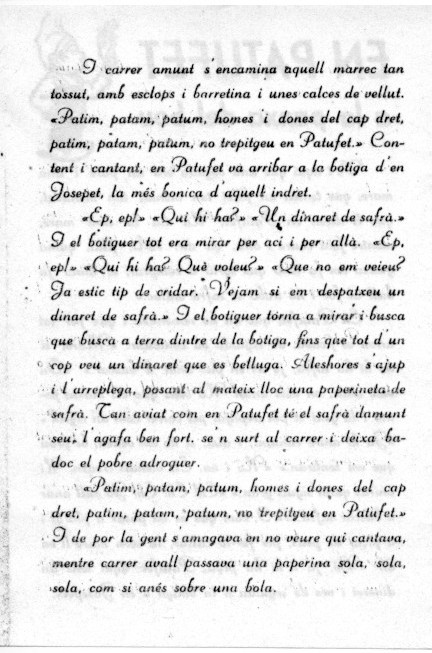 I carrer amunt s'encamina aquell marrec tan
tossut, amb esclops i barretina i unes calces de vellut.
«Patim, patam, patum, homes i dones del cap dret,
patim, patam, patum, no trepitgeu en Patufet.» Con-
tent i cantant, en Patufet va arribar a la botiga d'en
Josepet, la més bonica d'aquell indret.
«Ep, ep!» «Qui hi ha?» «Un dinaret de safrà.»
I el botiguer tot era mirar per aci i per allà. «Ep,
ep!» «Qui hi ha? Què voleu?» «Que no em veieu?
Ja estic tip de cridar. Vejam si em despatxeu un
dinaret de safrà.» I el botiguer torna a mirar i busca
que busca a terra dintre de la botiga, fins que tot d'un
cop veu un dinaret que es belluga. Aleshores s'ajup
i l'arreplega, posant al mateix lloc una paperineta de
safrà. Tan aviat com en Patufet té el safrà damunt
seu, l'agafa ben fort, se'n surt al carrer i deixa ba-
doc el pobre adroguer.
«Patim, patam, patum, homes i dones del cap
dret, patim, patam, patum, no trepitgeu en Patufet.»
I de por la gent s'amagava en no veure qui cantava,
mentre carrer avall passava una paperina sola, sola,
sola, com si anés sobre una bola.